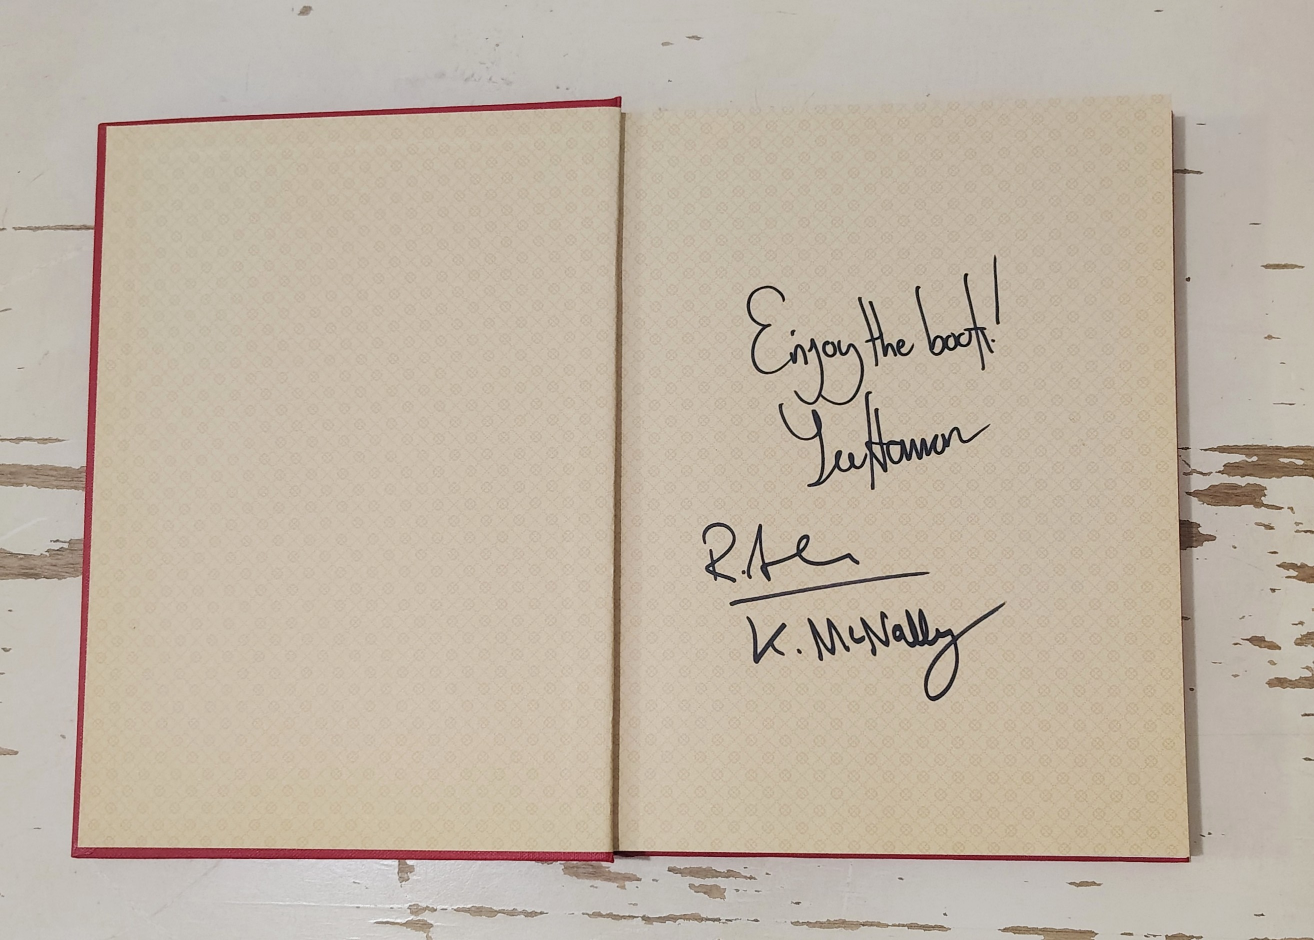 Enjoy the book!
Lee Harman
R.
K. McNally